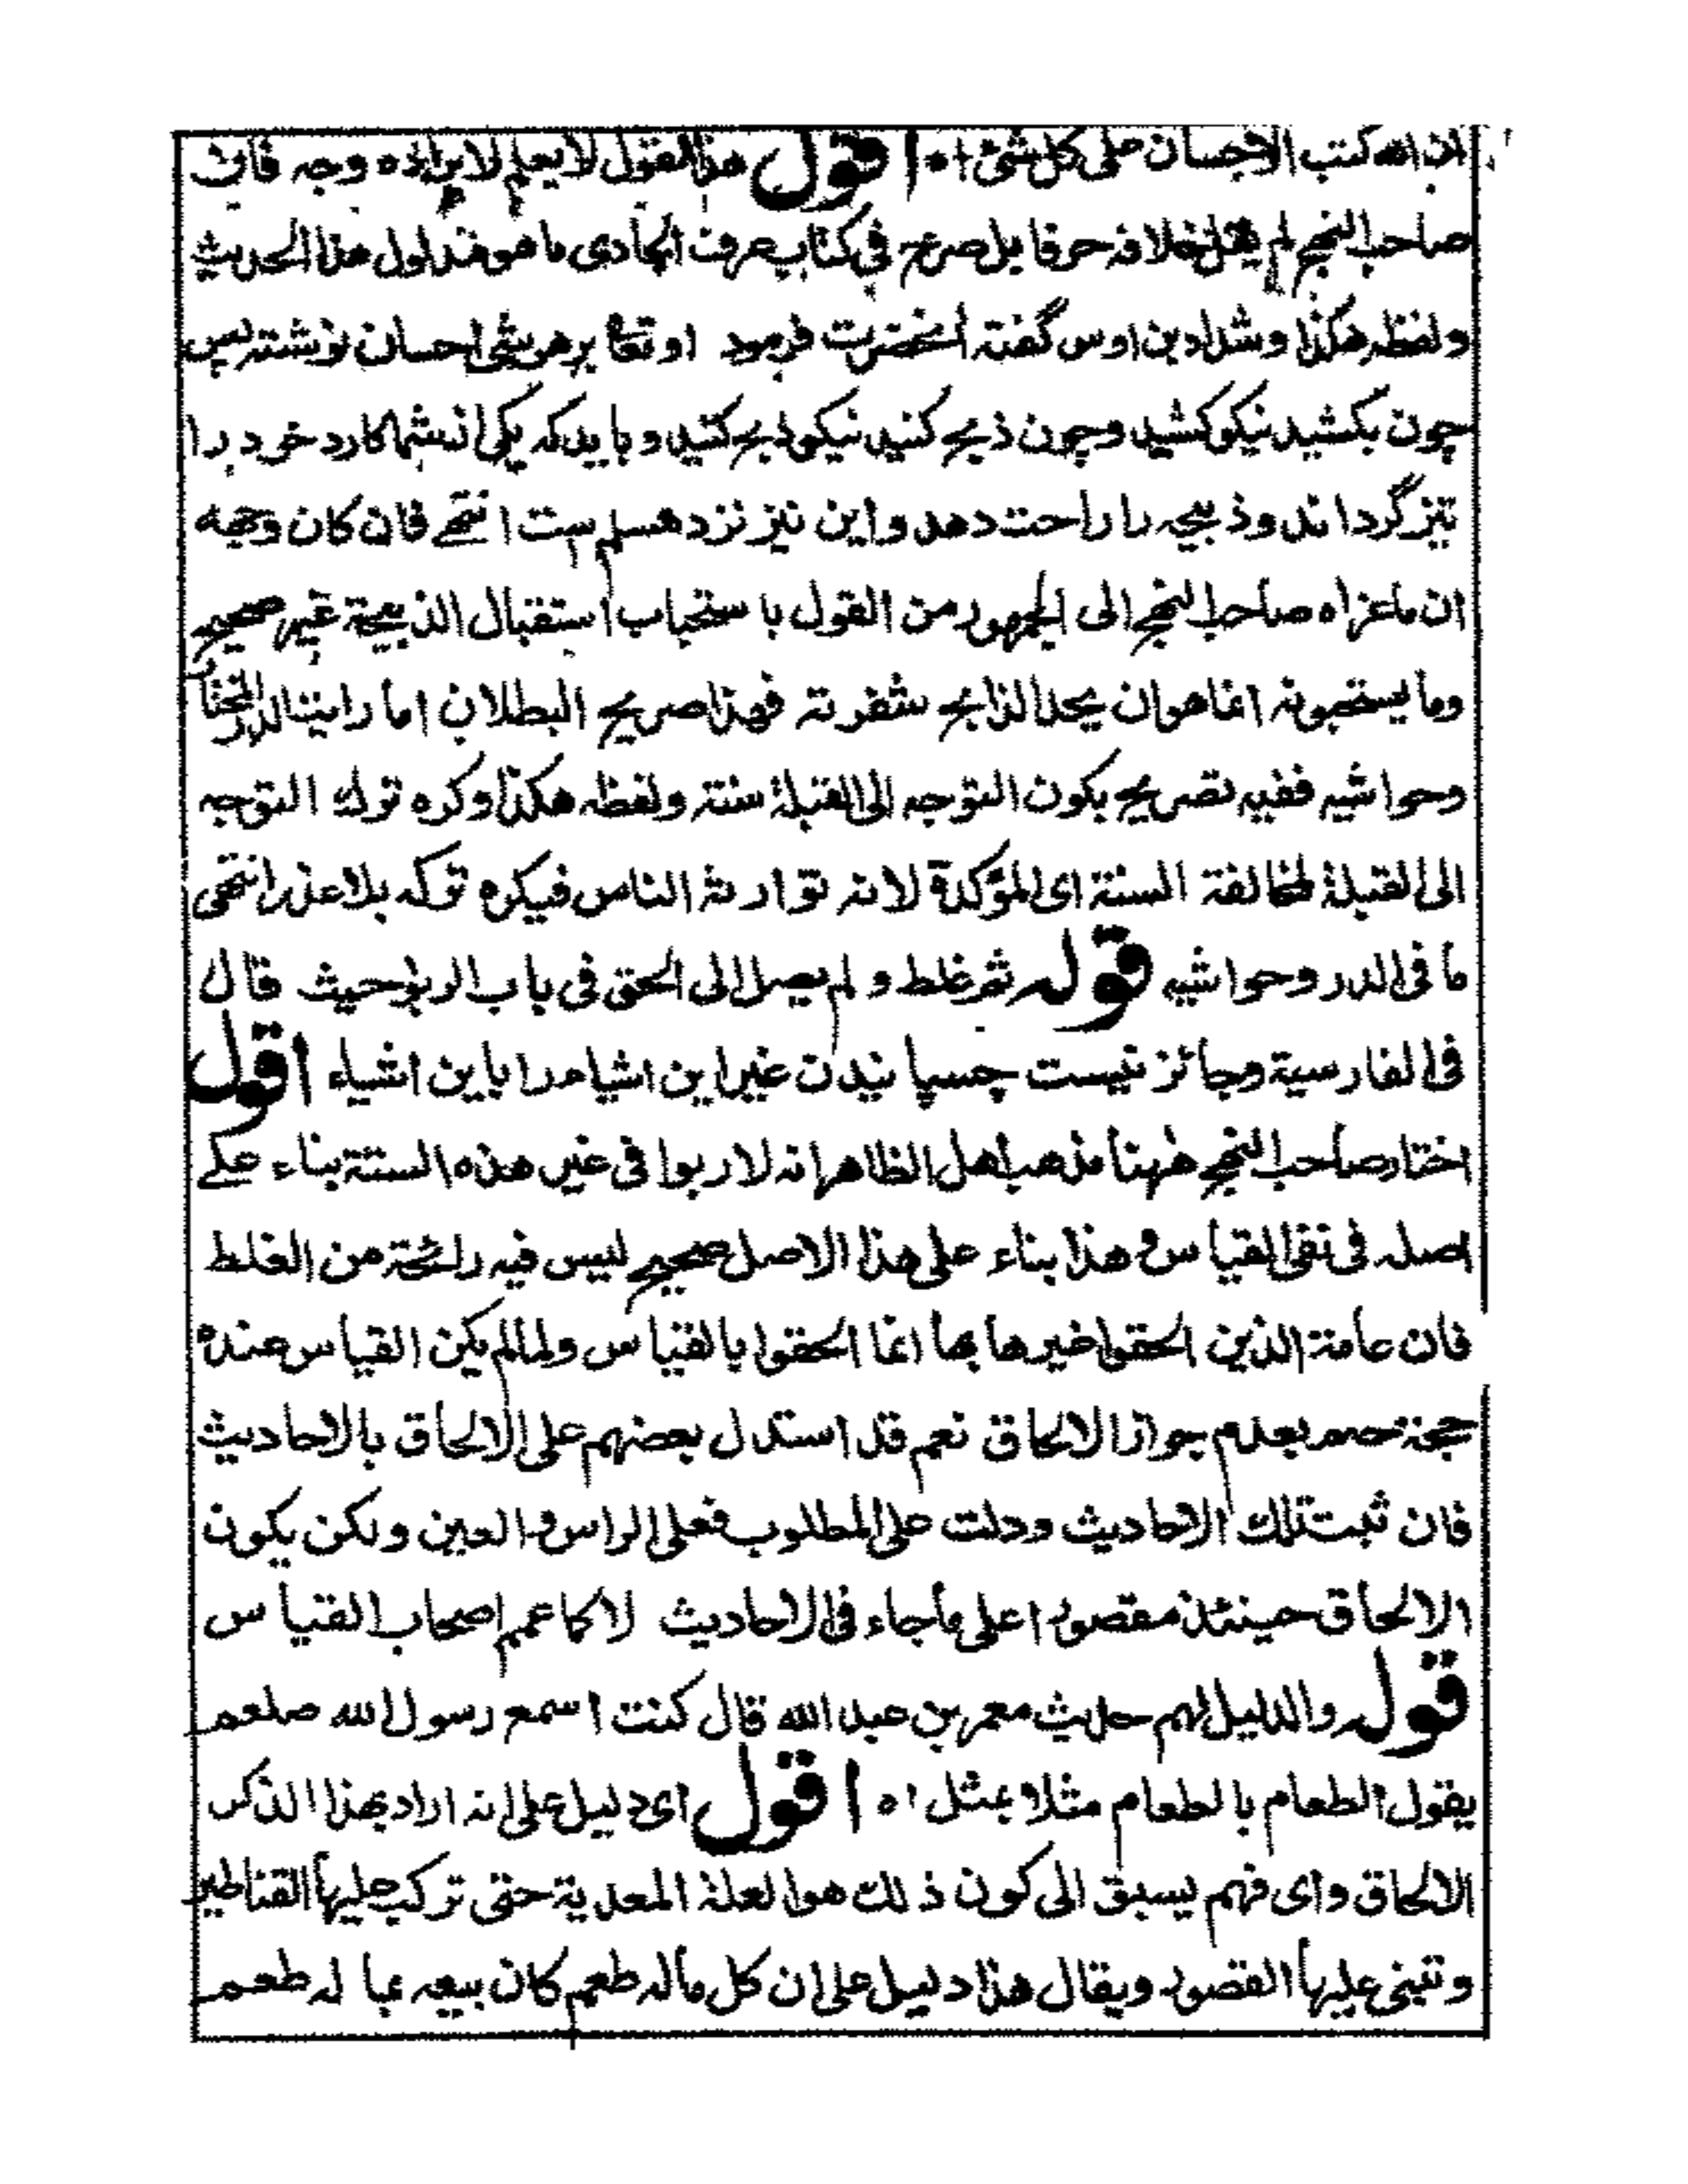 ان الله كتب الاحسان على كل شئ اه اقول هذا القول لا يعلم لايراده وجه فان
صاحب النهج لم يقل خلافه حرفا بل صرح في كتاب عرف الجادى ما هو مدلول هذا الحديث
ولفظه هكذا وشداد بن اوس گفته آنحضرت فرمود اوتعا برهر شئ احسان نوشته پس
چون بكشيد نيكو كشيد وچون ذبح كنيد نيكو ذبح كنيد وبايد كه يكى از شما كارد خود را
تيز گرداند وذبيحه را راحت دهد واين نيز نزد مسلم ست انتهے فان كان وجهه
ان ما عزاه صاحب النهج الى الجمهور من القول باستحباب استقبال الذبيحة غير صحيح
وما يستحبونه انما هو ان يحد الذابح شفرته فهذا صريح البطلان اما رايت الدر المختار
وحواشيه ففيه تصريح بكون التوجه الى القبلة سنة ولفظه هكذا وكره ترك التوجه
الى القبلة لمخالفة السنة اى المؤكدة لانه توارثه الناس فيكره تركه بلا عذر انتهى
ما فى الدر وحواشيه قوله ثم غلط ولم يصل الى الحق فى باب الربو حيث قال
فى الفارسية وجائز نيست چسپانيدن غير اين اشياء را باين اشياء اقول
اختار صاحب النهج ههنا مذهب اهل الظاهر انه لا ربوا فى غير هذه الستة بناء علے
اصله فى نفى القياس و هذا بناء على هذا الاصل صحيح ليس فيه رائحة من الغلط
فان عامة الذين الحقوا غيرها بها انما الحقوا بالقياس ولما لم يكن القياس عنده
حجة صرح بعدم جواز الالحاق نعم قد استدل بعضهم على الالحاق بالاحاديث
فان ثبت تلك الاحاديث ودلت على المطلوب فعلى الراس والعين ولكن يكون
الالحاق حينئذ مقصورا على ما جاء فى الاحاديث لا كما عمم اصحاب القياس
قوله والدليل لهم حديث معمر بن عبد الله قال كنت اسمع رسول الله صلعم
يقول الطعام بالطعام مثلا بمثل اه اقول اى دليل على انه اراد بهذا الذكر
الالحاق واى فهم يسبق الى كون ذلك هو العلة المعدية حتى تركب عليها القناطير
وتبنى عليها القصور ويقال هذا دليل على ان كل ما له طعم كان بيعه بما له طعم